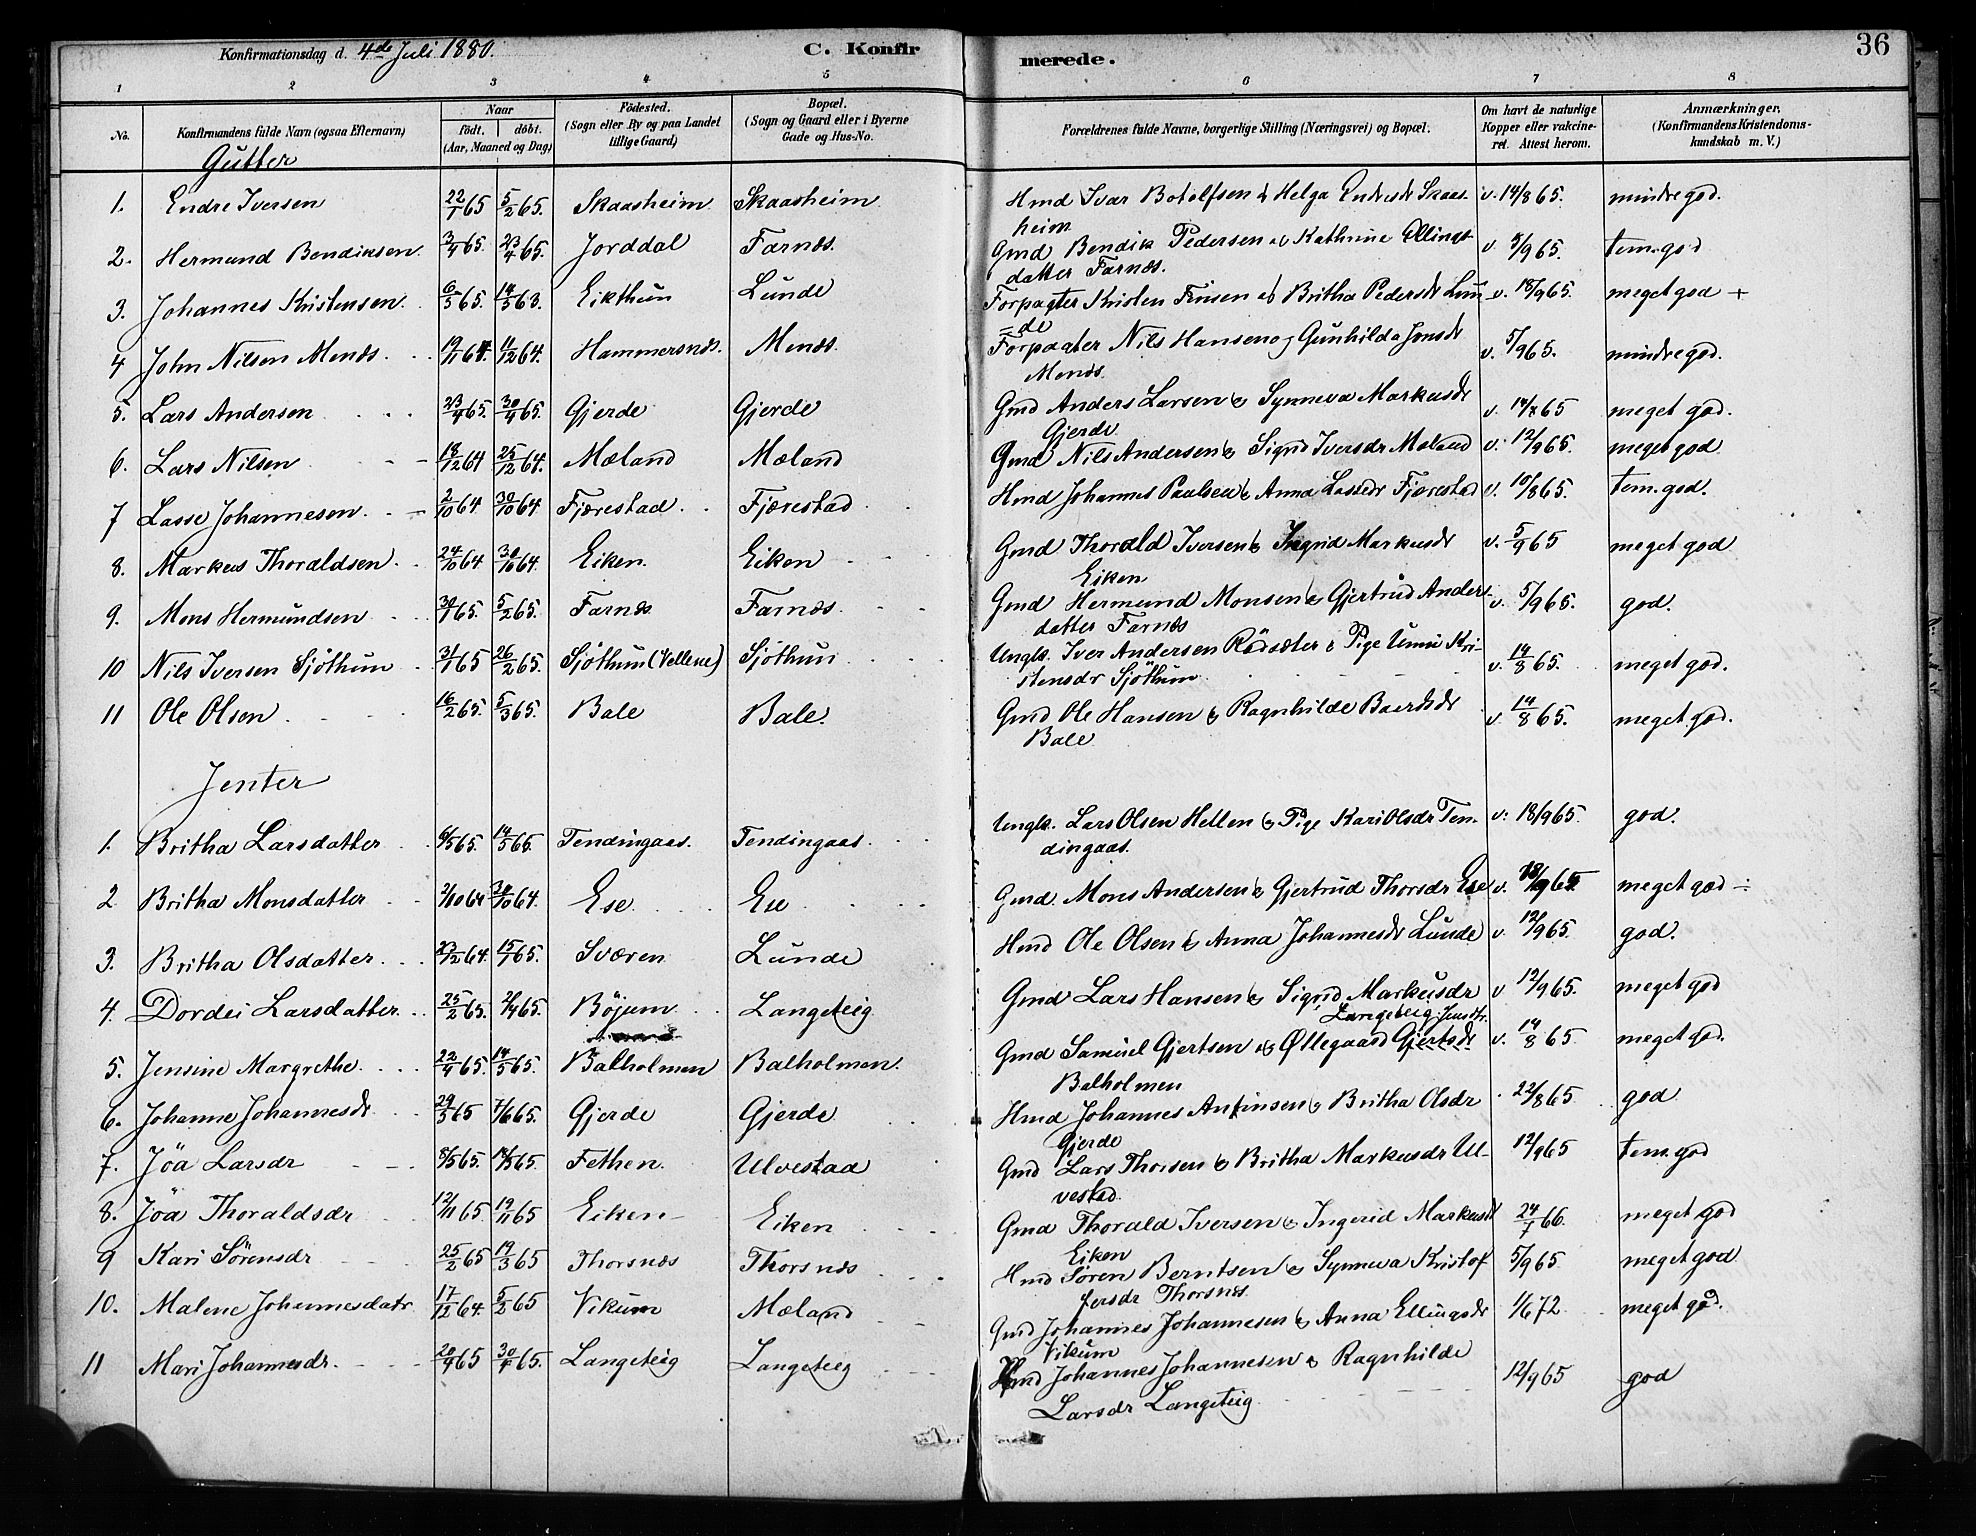 Konfirmationsdag d. 4de Juli 1880.
C. Konfirmerede.
36
1 2 3 4 5 6 7 8
No. Konfirmandens fulde Navn (ogsaa Efternavn) Naar født. døbt. (Aar, Maaned og Dag) Födested. (Sogn eller By og paa Landet tillige Gaard) Bopæl. (Sogn og Gaard eller i Byerne Gade og Hus-No. Forældrenes fulde Navne, borgerlige Stilling (Næringsvei) og Bopæl. Om havt de naturlige Kopper eller vakcineret. Attest herom. Anmærkninger. (Konfirmandens Kristendomskundskab m. V.)
Gutter
1. Endre Iversen 22/1 65 5/2 65. Skaasheim Skaasheim Hmd Ivar Botolfsen & Helga Endresdr Skaas- v. 14/8 65. mindre god.
heim
2. Hermund Bendiksen. 3/4 65. 23/4 65. Jorddal Farnæs. Gmd Bendik Pedersen & Kathrine Ellings v. 5/9 65. tem. god
datter Farnæs.
3. Johannes Kristensen. 6/5 65. 14/5 63. Eikthun Lunde Forpagter Kristen Ensen & Britha Pedersdr Lun v. 18/9 65. meget god +
=de
4 John Nilsen Menæs. 19/11 64. 11/12 64. Hammersnæs. Menæs. Forpagter Nils Hansen og Gunhilda Jensdr v. 5/9 65. mindre god.
Menæs.
5. Lars Andersen 23/4 65. 30/4 65. Gjerde Gjerde Gmd Anders Larsen & Synneva Markusdr v. 14/8 65 meget god.
Gjerde
6. Lars Nilsen 18/12 64 25/12 64. Mæland Mæland Gmd Nils Andersen & Sigrid Iversdr Mæland v. 12/9 65. meget god
7 Lasse Johannesen. 2/10 64 30/10 64 Fjærestad Fjærestad. Hmd Johannes Paulsen & Anna Lassedr Fjærestad v. 10/8 65. tem. god.
8. Markus Thoraldsen 24/10 64 30/10 64. Eiken. Eiken Gmd Thorald Iversen & Ingrid Markusdr v. 5/9 65 meget god
Eiken
9. Mons Hermundsen 30/1 65. 5/2 65. Farnæs Farnæs. Gmd Hermund Monsen & Gjertrud Anders- v. 5/9 65. god.
datter Farnæs
10 Nils Iversen Sjøthun 31/1 65 26/2 65. Sjøthun (Vellene) Sjøthun Ungk. Iver Andersen Rødsæter & Pige Unni Kri- v. 14/8 65. meget god.
stensdr Sjøthun
11 Ole Olsen. 16/2 65. 5/3 65. Bale Bale. Gmd Ole Hansen & Ragnhilde Baardsdr v. 14/8 65. meget god.
Bale
Jenter
1. Britha Larsdatter 6/5 65. 14/5 65. Tendingaas. Tendingaas. Ungk. Lars Olsen Hellen & Pige Kari Olsdr Ten- v. 18/9 65. god.
dingaas.
2 Britha Monsdatter 2/10 64 30/10 64. Ese Ese Gmd. Mons Andersen & Gjertrud Thorsdr Ese v. 18/9 65 meget god ÷
3. Britha Olsdatter. 23/12 64. 15/1 65. Sværen Lunde Hmd Ole Olsen & Anna Johannesdr Lunde v. 12/9 65. god.
4. Dordei Larsdatter. 25/2 65. 2/4 65. Böjum Langeteig Gmd Lars Hansen & Sigrid Markusdr v 12/9 65. meget god
Langeteig. Jensdr.
5. Jensine Margrethe. 22/4 65. 14/5 65. Balholmen Balholmen. Gmd Samuel Gjertsen & Øllegaard Gjertsdr v. 14/8 65. meget god.
Balholmen
6. Johanne Johannesdr 29/5 65 7/6 65. Gjerde Gjerde Hmd Johannes Anfinsen & Britha Olsdr 22/8 65. god
Gjerde
7. Jöa Larsdr 8/5 65. 14/5 65. Fethen. Ulvestad Gmd Lars Thorsen & Britha Markusdr Ul- 12/9 65 tem. god
vestad.
8. Jöa Thoraldsdr 12/11 65. 19/11 65 Eiken Eiken Gmd Thorald Iversen & Ingerid Markusdr 24/1 66. meget god
Eiken
9 Kari Sørensdr 25/2 65 19/3 65 Thorsnæs Thorsnæs Hmd Søren Berntsen & Synneva Kristof 5/9 65 meget god
fersdr Thorsnæs
10. Malene Johannesdatr 17/12 64. 5/2 65 Vikum Mæland Gmd Johannes Johannesen & Anna Ellingsdr 1/6 72 meget god.
Vikum
11 Mari Johannesdr. 20/4 65 30/4 65. Langeteig Langeteig Hmd Johannes Johannesen & Ragnhilde 12/9 65 god
Larsdr Langeteig